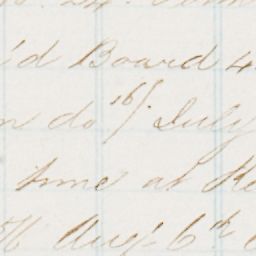 24.
'd Board 4
do 16/ July
time at
Aug. 6th